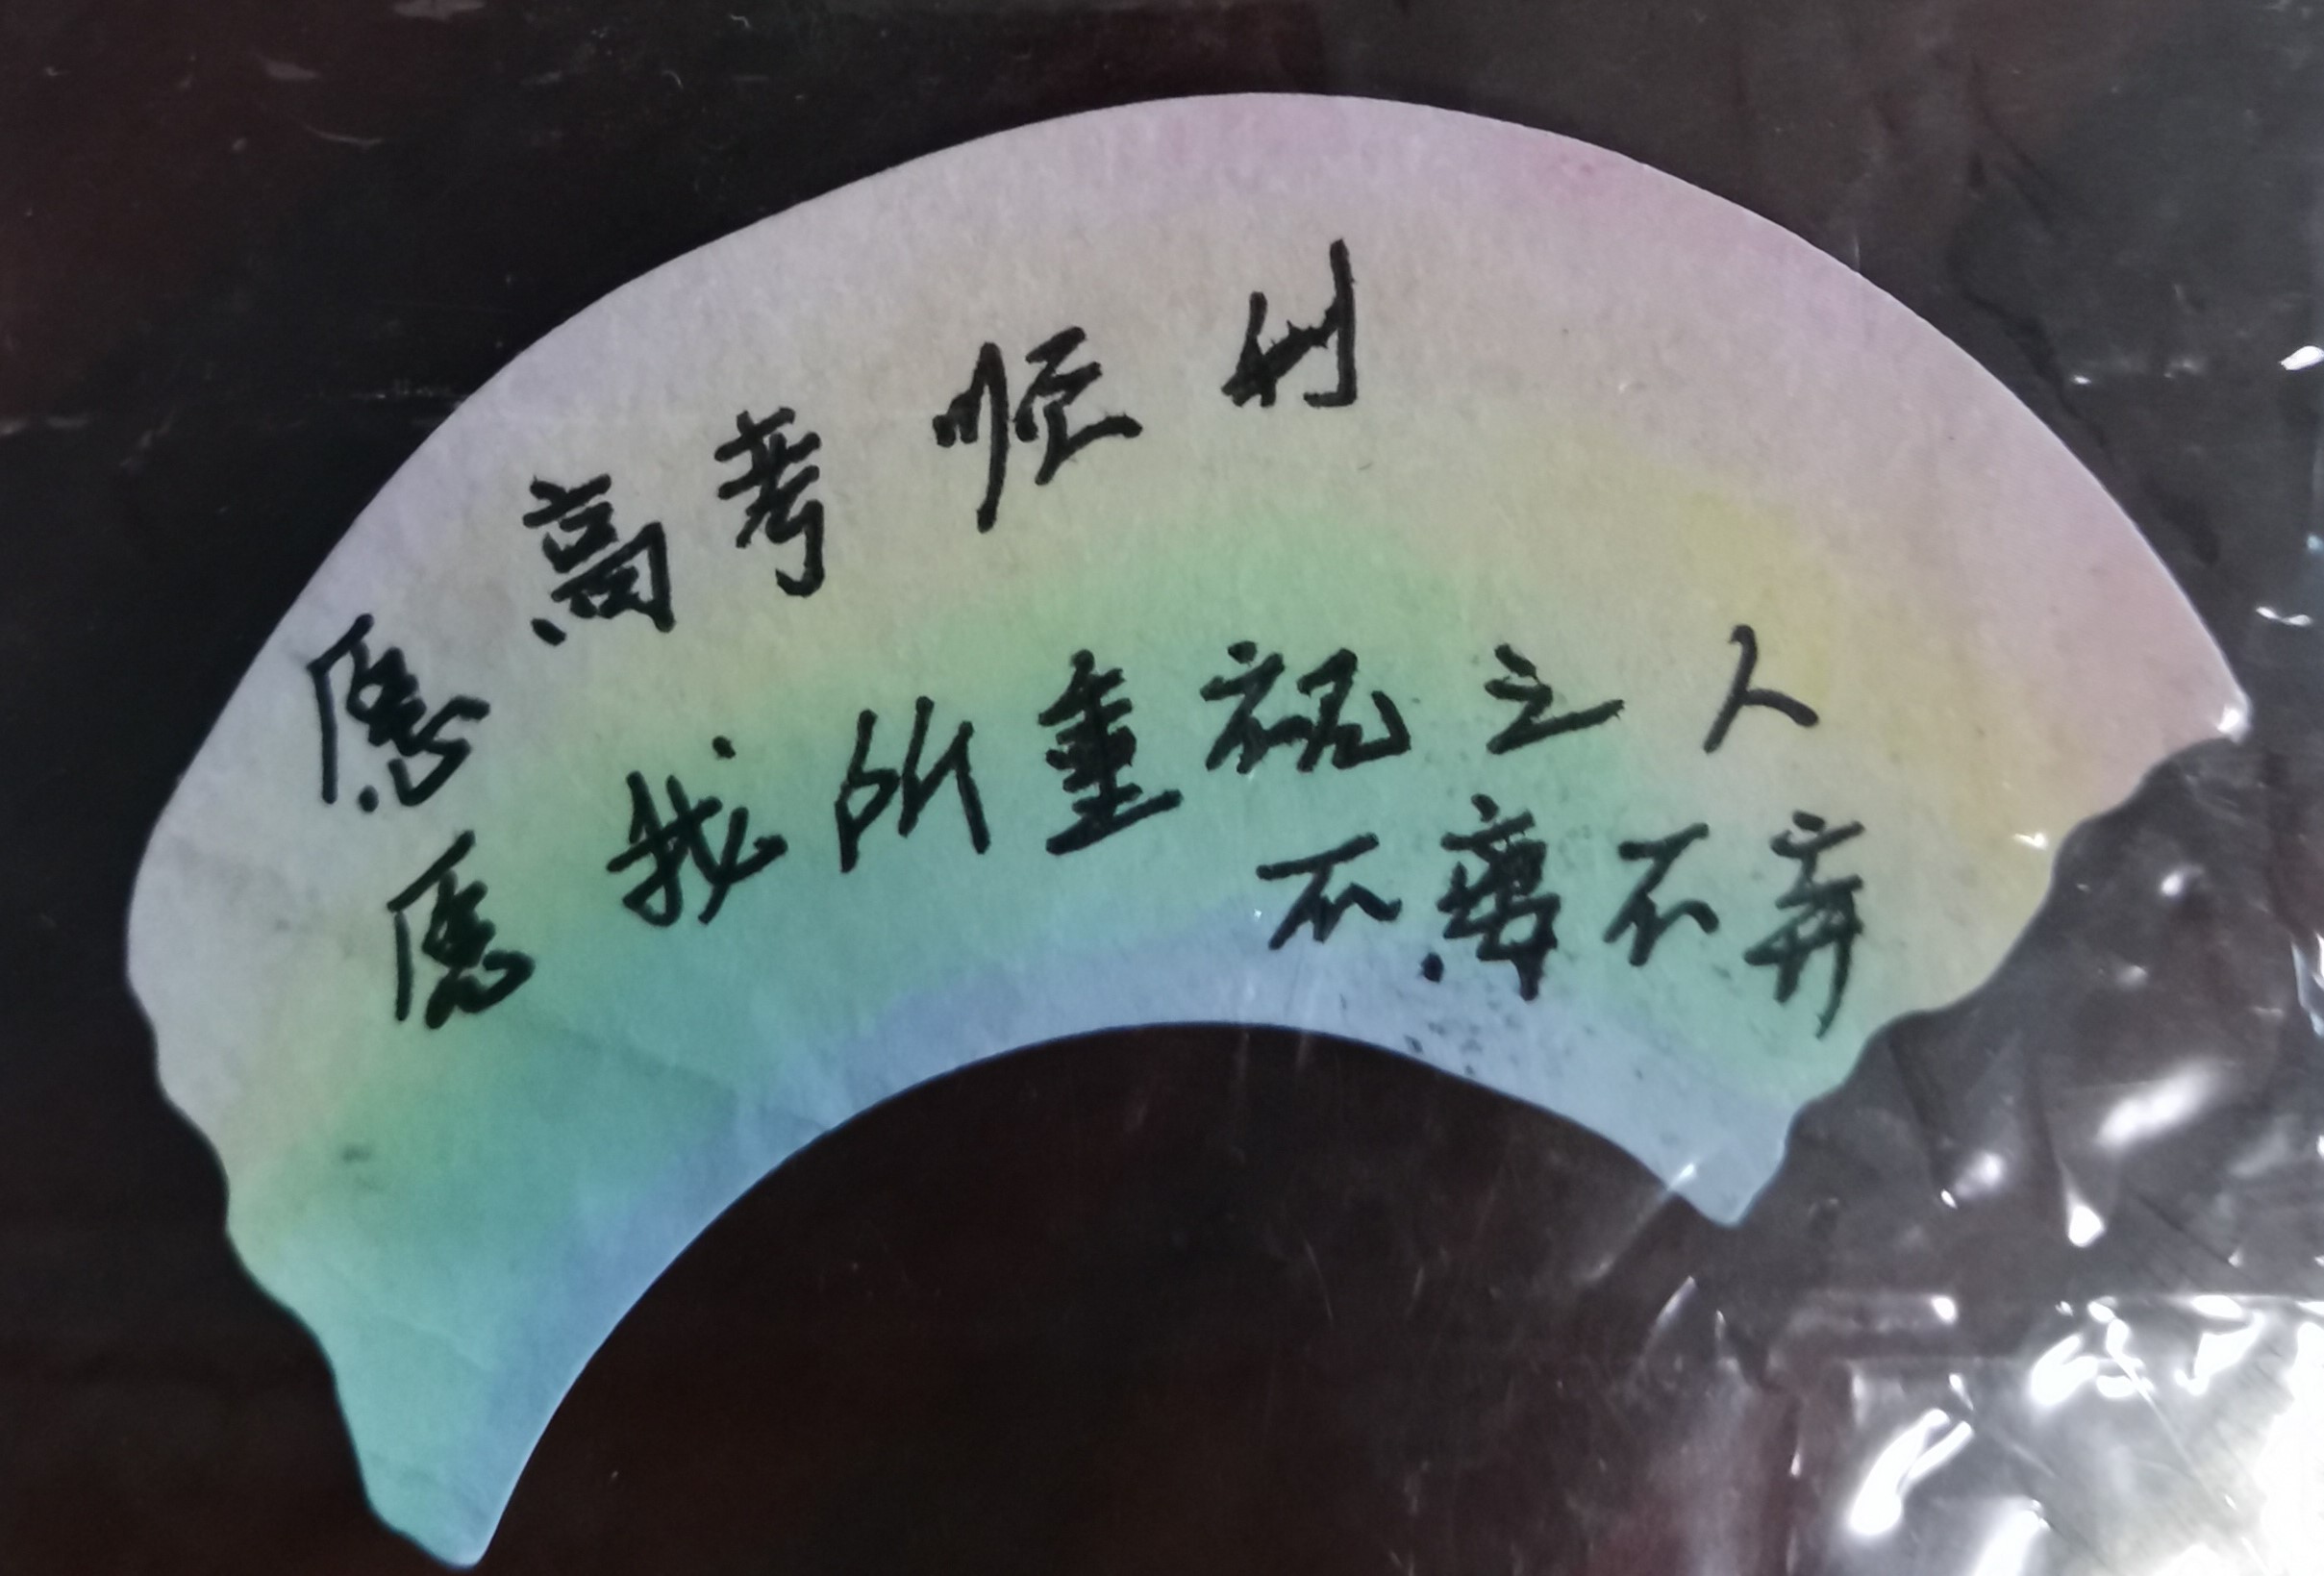 愿高考顺利
愿我所重视之人
不离不弃